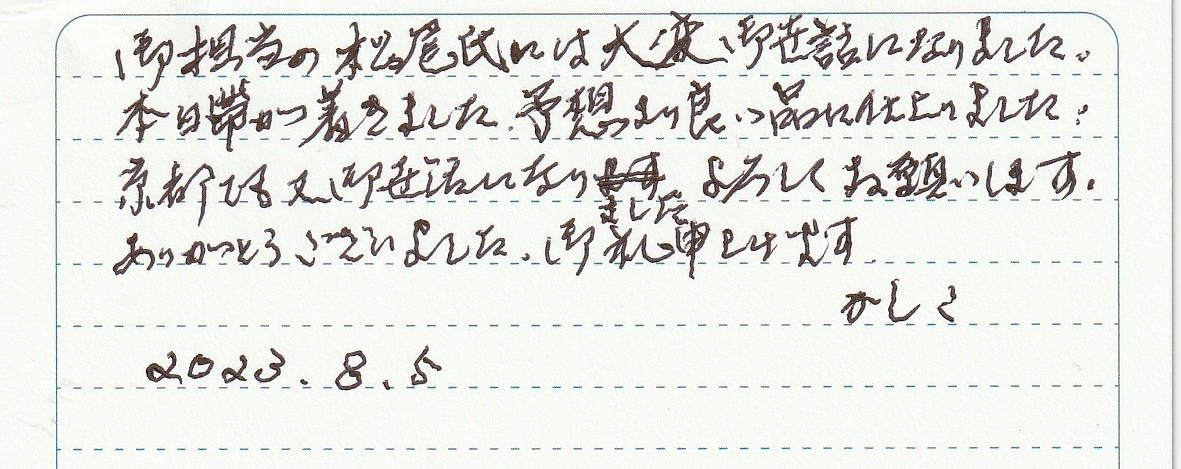 御担当の松尾氏には大変御世話になりました。
本日帯が着きました。予想より良い品に仕上りました。
京都でも又御世話になりました よろしくお願いします。
ありがとうございました。御礼申上げます
かしこ
2023.8.5